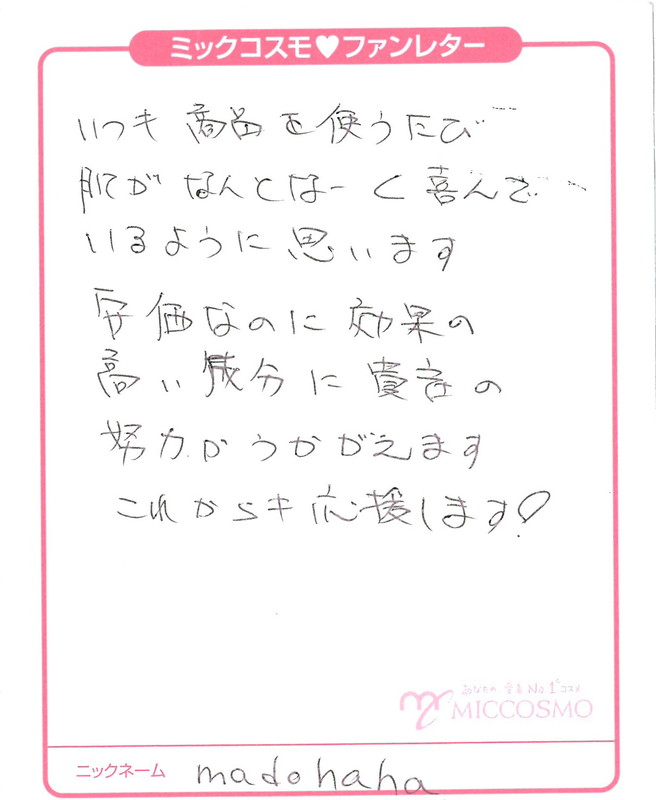 ミックコスモ♥ファンレター
いつも 商品を使うたび
肌が なんとなーく喜んで
いるように思います
安価なのに効果の
高い成分に貴店の
努力がうかがえます
これからも応援します♡
あなたの No.1コスメ
MICCOSMO
ニックネーム madohaha